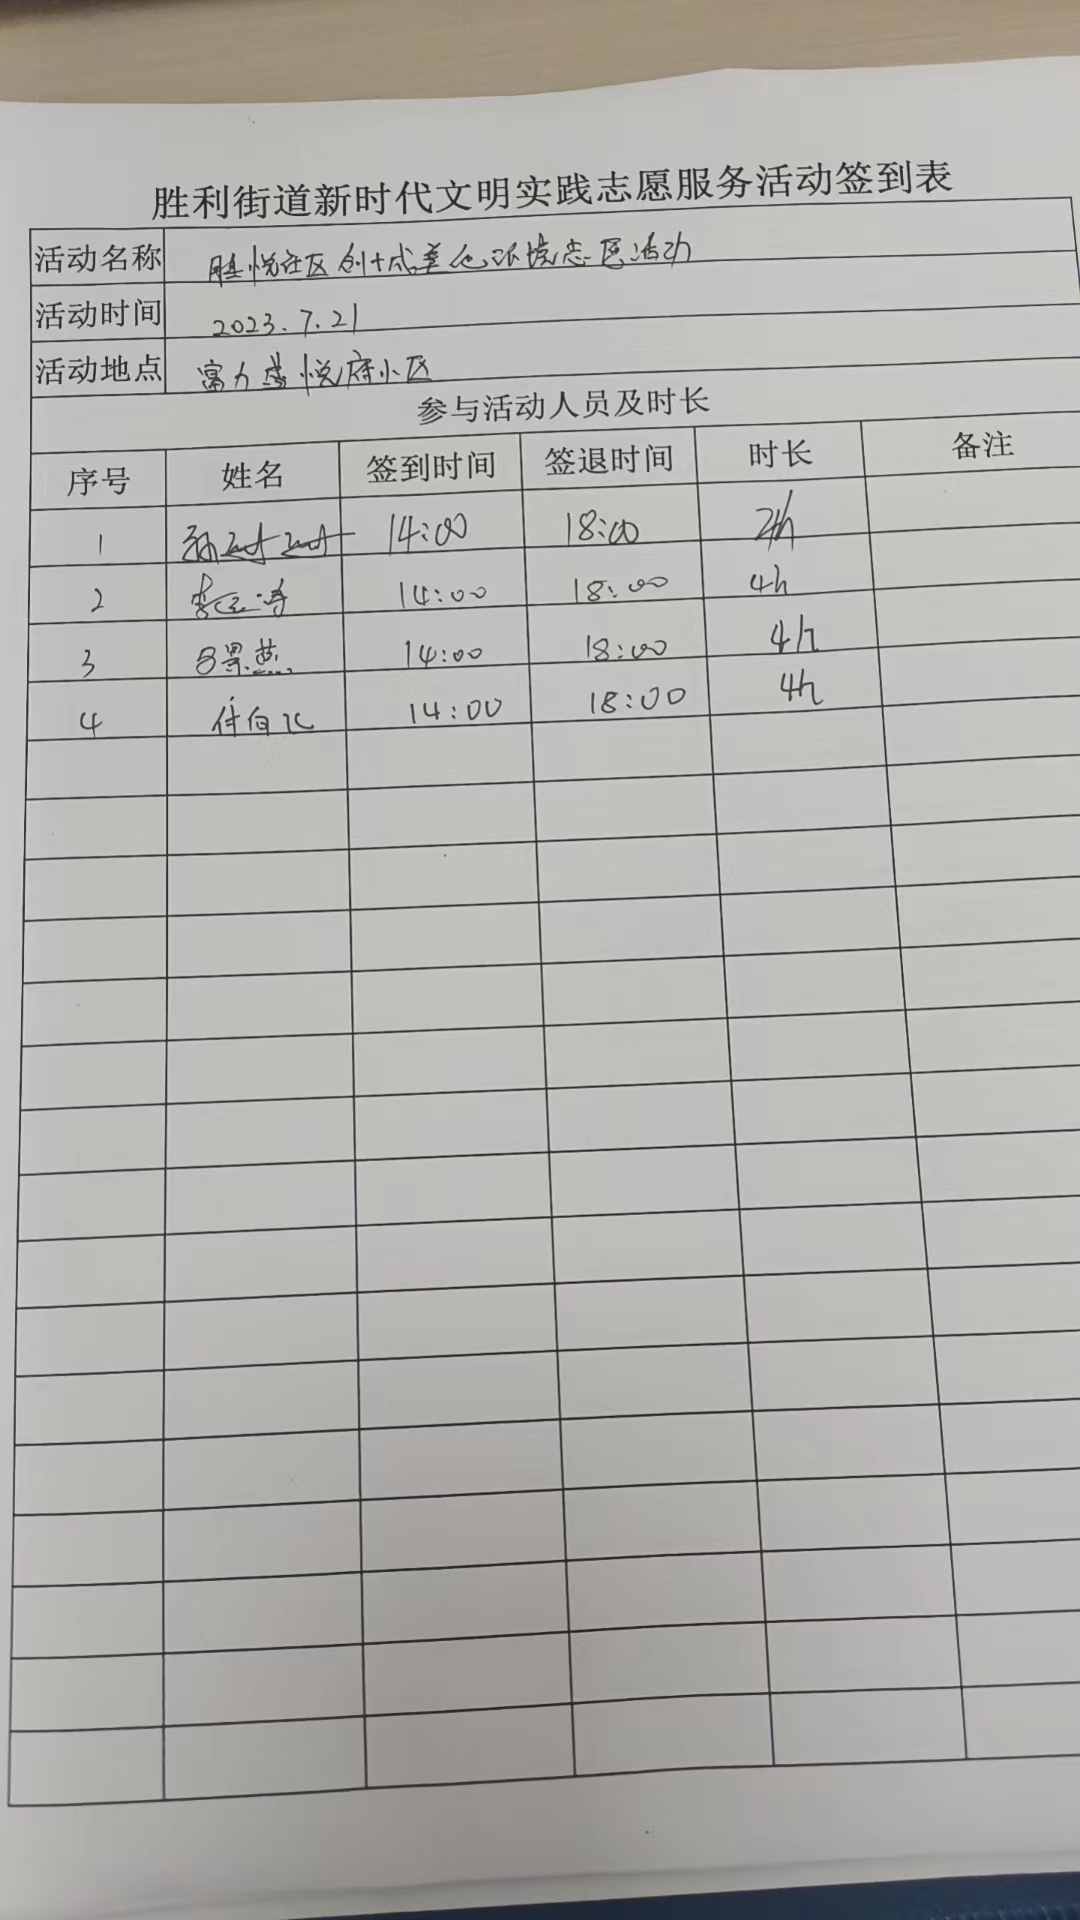 胜利街道新时代文明实践志愿服务活动签到表
活动名称 胜悦社区创城美化环境志愿活动
活动时间 2023.7.21
活动地点 富力盛悦府小区
参与活动人员及时长
序号 姓名 签到时间 签退时间 时长 备注
1 14:00 18:00 4h
2 李 14:00 18:00 4h
3 吕景燕 14:00 18:00 4h
4 任向 14:00 18:00 4h